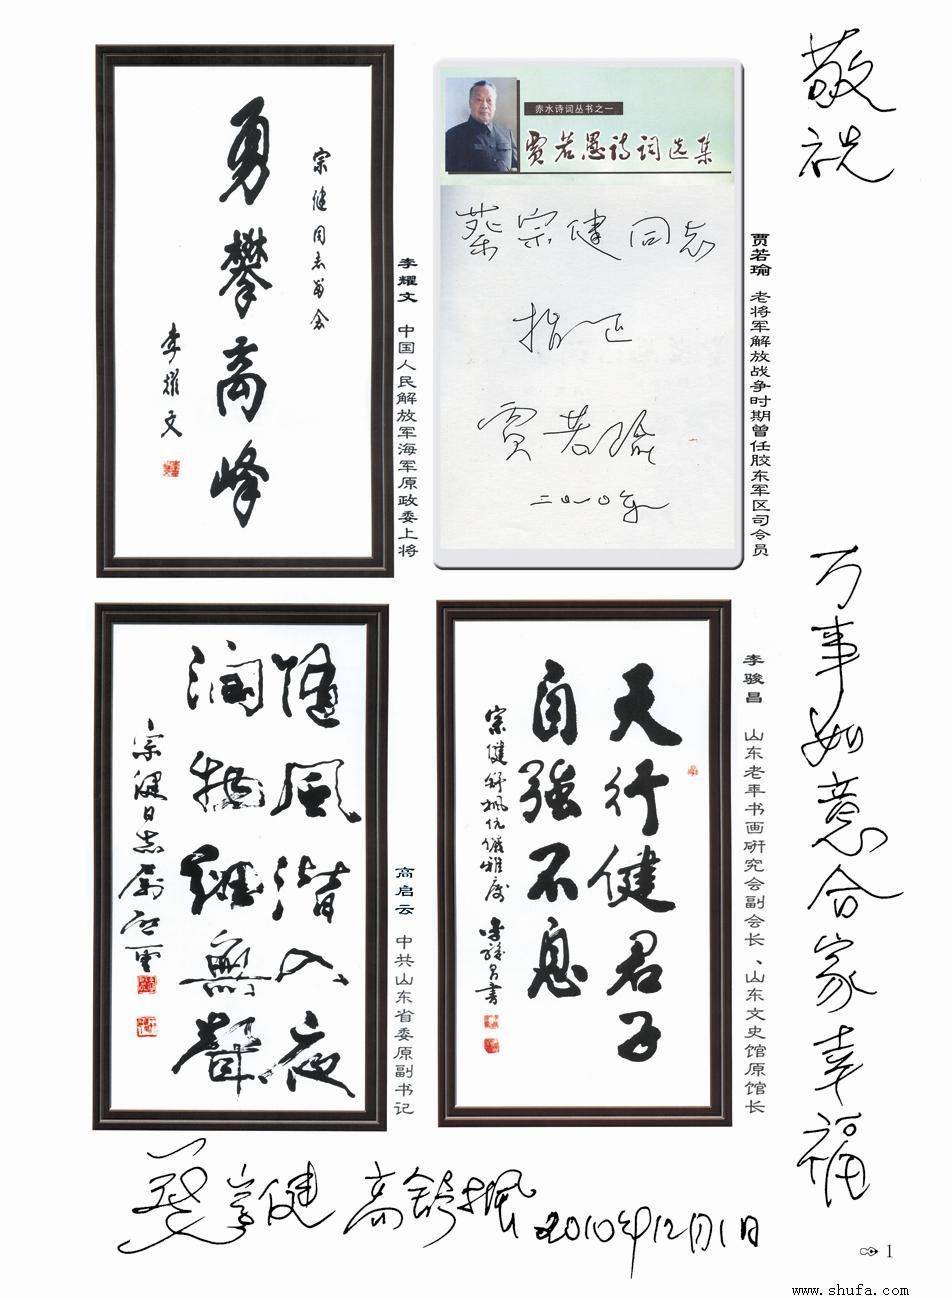 敬祝
万事如意合家幸福
宗健同志留念
勇攀高峰
李耀文
李耀文 中国人民解放军海军原政委上将
赤水诗词丛书之一
贾若愚诗词选集
蔡宗健同志
指正
贾若瑜
二〇一〇年
贾若瑜 老将军解放战争时期曾任胶东军区司令员
随風潜入夜
潤物細無聲
宗健同志属 启雲
高启云 中共山东省委原副书记
天行健君子
自强不息
宗健舒枫伉儷雅屬 李駿昌書
李骏昌 山东老年书画研究会副会长、山东文史馆原馆长
蔡宗健 高舒楓 2010年12月1日
1
www.shufa.com